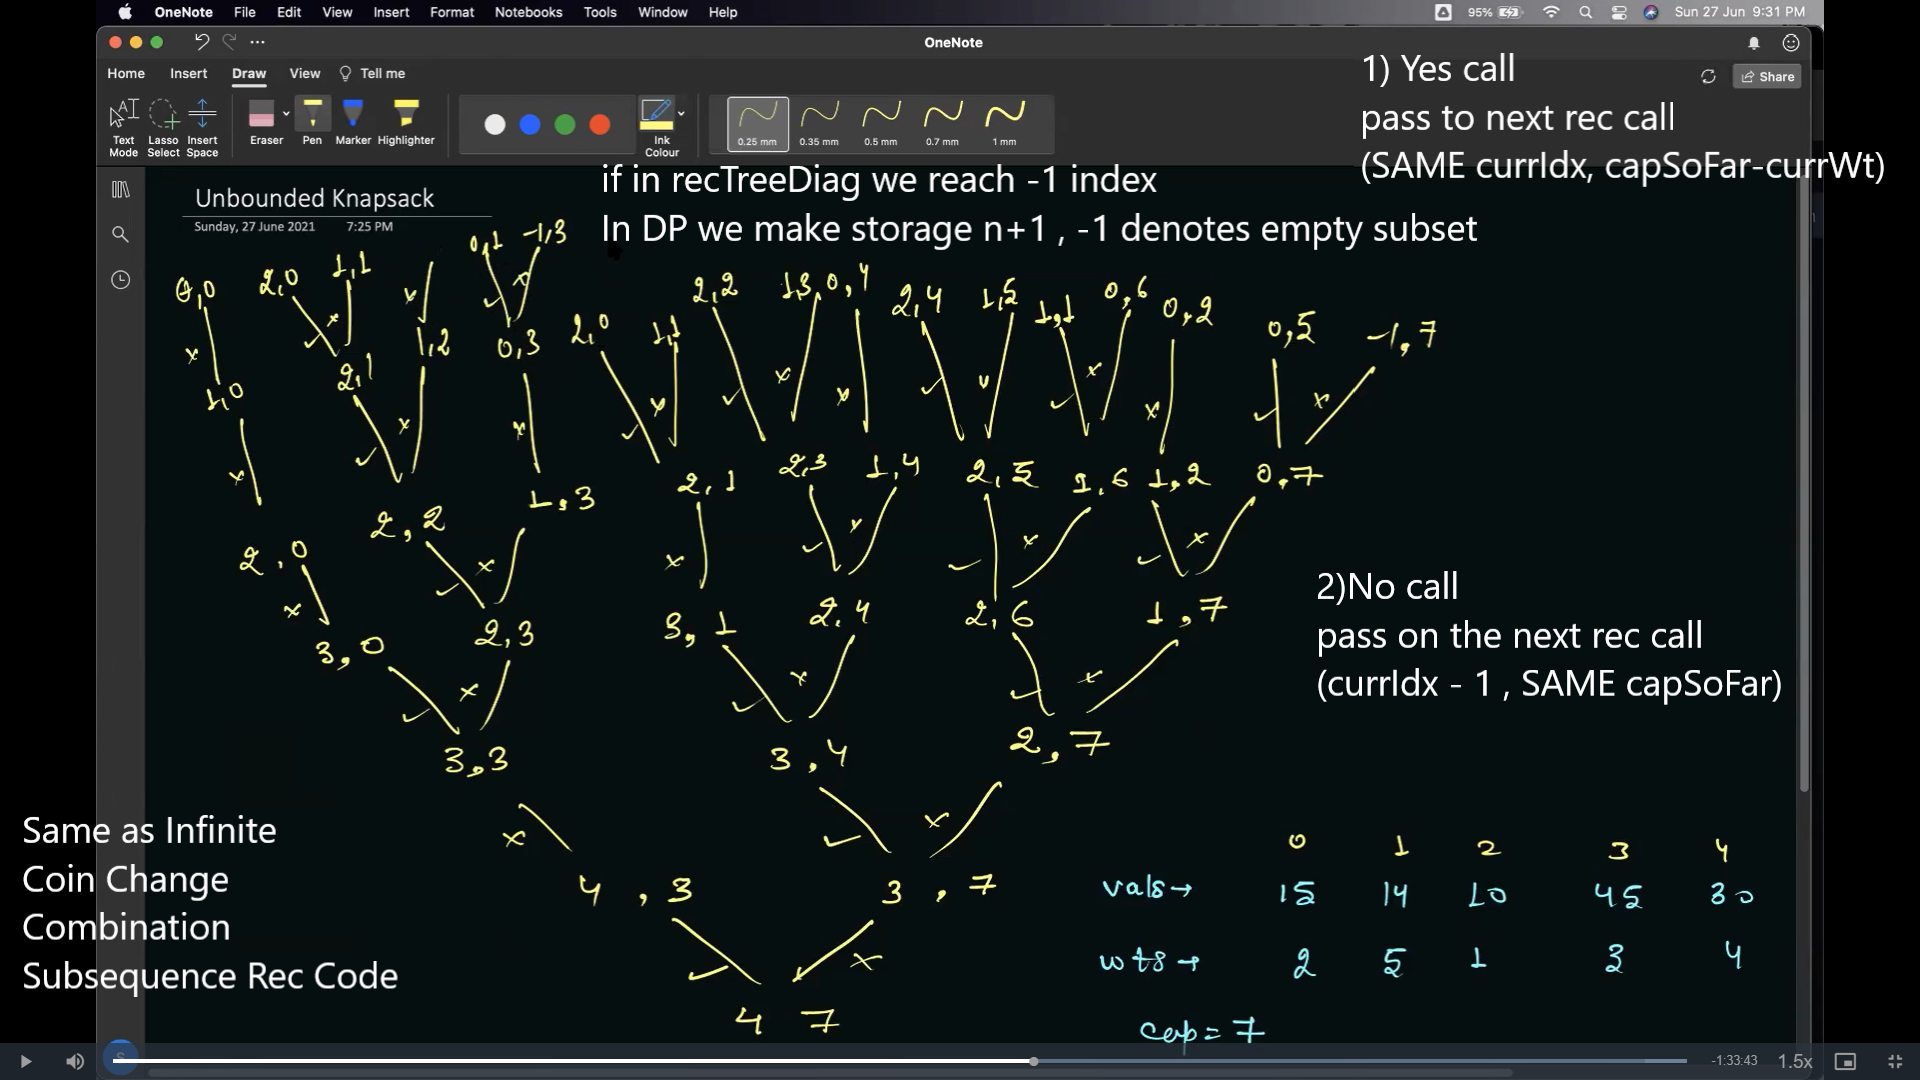 OneNote File Edit View Insert Format Notebooks Tools Window Help 95% Sun 27 Jun 9:31 PM
OneNote
Home Insert Draw View Tell me
Share
Text Mode
Lasso Select
Insert Space
Eraser Pen Marker Highlighter
Ink Colour
0.25 mm 0.35 mm 0.5 mm 0.7 mm 1 mm
1) Yes call
pass to next rec call
(SAME currIdx, capSoFar-currWt)
if in recTreeDiag we reach -1 index
In DP we make storage n+1 , -1 denotes empty subset
Unbounded Knapsack
Sunday, 27 June 2021 7:25 PM
0,1 -1,3
0,0 2,0 1,1 2,2 1,3 0,4 2,4 1,5 1,1 0,6 0,2
1,2 0,3 2,0 1,1 0,5 -1,7
1,0 2,1
2,2 1,3 2,1 2,3 1,4 2,5 1,6 1,2 0,7
2,0
3,0 2,3 3,1 2,4 2,6 1,7
3,3 3,4 2,7
4,3 3,7
4 7
2)No call
pass on the next rec call
(currIdx - 1 , SAME capSoFar)
Same as Infinite
Coin Change
Combination
Subsequence Rec Code
0 1 2 3 4
vals→ 15 14 10 45 30
wts→ 2 5 1 3 4
cap= 7
-1:33:43 1.5x